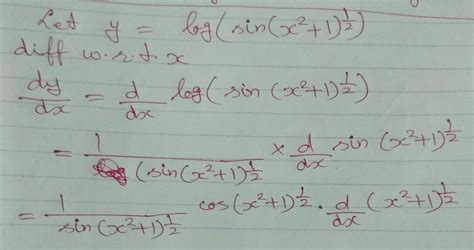 Let y = log(sin(x²+1)^½)
diff w.r.t x
dy/dx = d/dx log(sin (x²+1)^½)
= 1/(sin(x²+1)^½) × d/dx sin (x²+1)^½
= 1/sin(x²+1)^½ cos(x²+1)^½ . d/dx (x²+1)^½